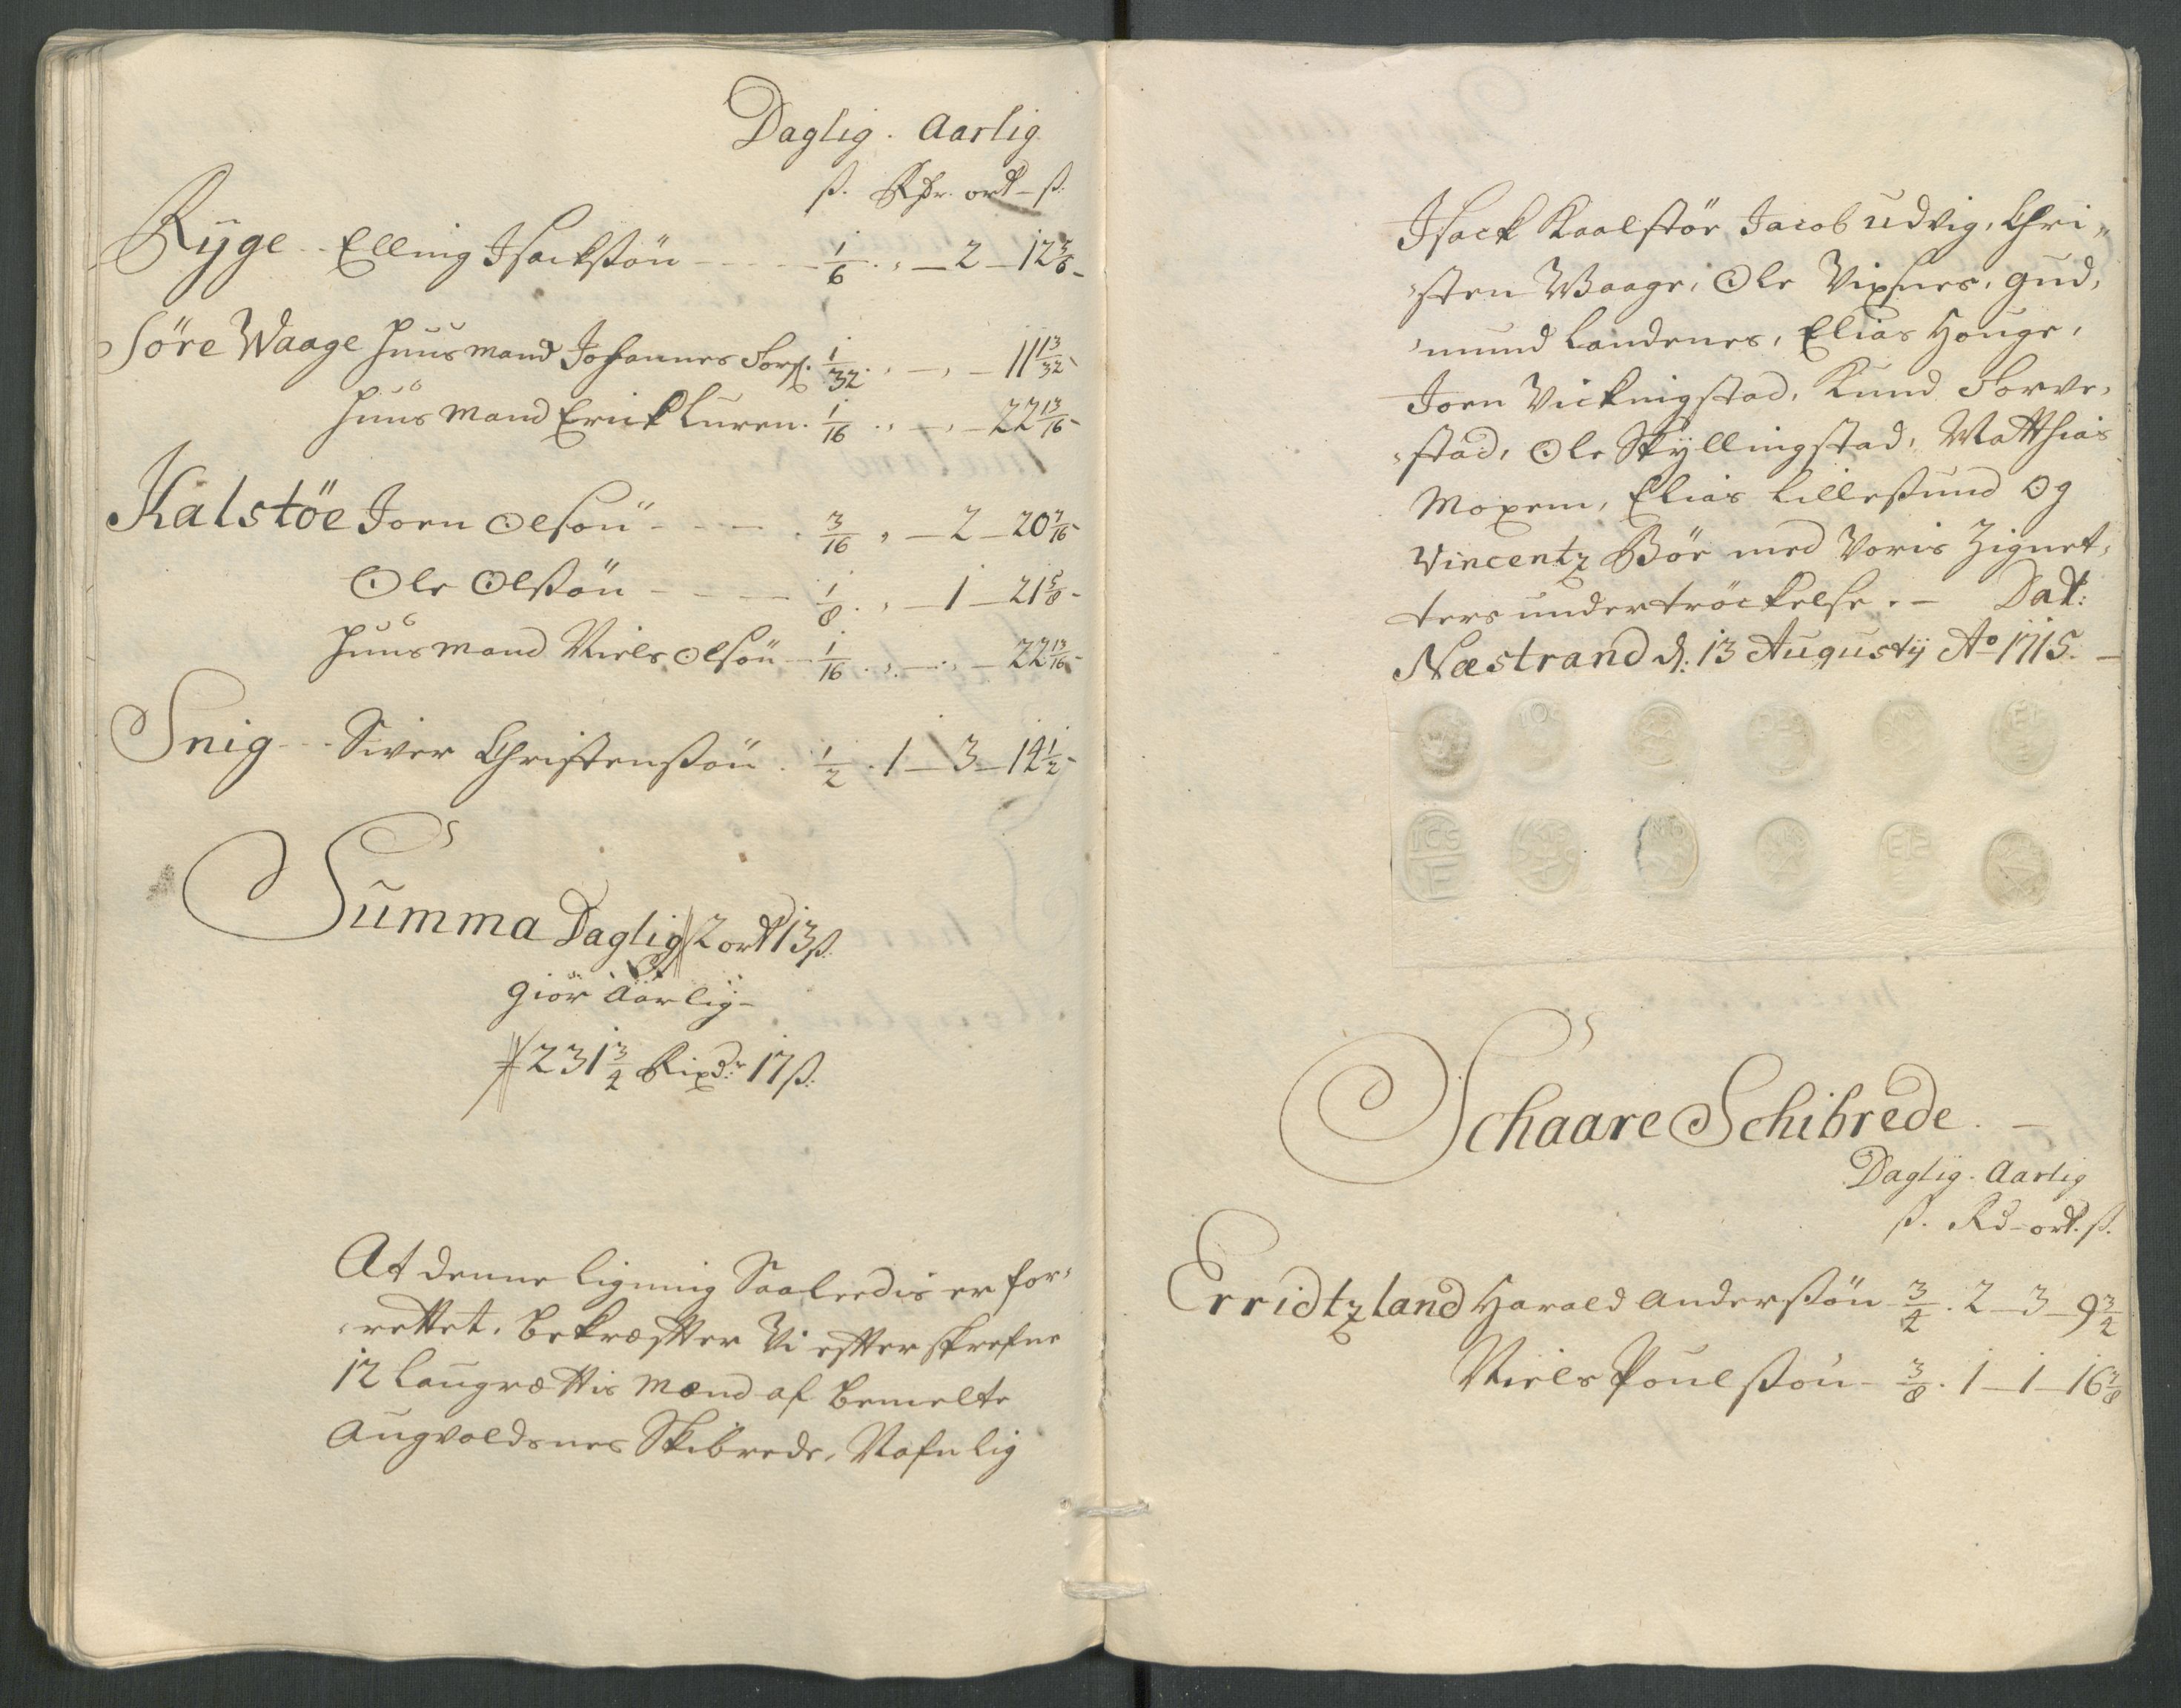 Daglig. Aarlig
ß. Rdr. ort - ß.
Ryge - Elling Isachsøn - - - 1/6 . , - 2 - 12 5/6 -
Søre Waage Huusmand Johannes 1/32 . , - , - 11 13/32 -
Huusmand Erick Luren. 1/16 . , - , - 22 13/16 -
Kalstöe Joen Olsøn - - - . 3/16 , - 2 - 20 7/16 -
Ole Olsøn - - - 1/8 . , - 1 - 21 5/8 -
Huusmand Niels Olsøn - 1/16 . , - , - 22 13/16 -
Snig - - Siver Christensøn . 1/2 . 1 - 3 - 14 1/2 -
Summa Daglig 2 ort 13 ß.
Er
giör Aarlig -
231 3/4 Rixdr. 17 ß.
At denne ligning Saaleedis er for-
-rettet, bekræfter Vi efterskrefne
12 Laugrættis Mænd af bemelte
Augvaldsnes Skibrede, Nafnlig
Isack Kaalstøe Jacob Udvig, Chri„
-sten Waage, Ole Vixsnes, Gud,
-mund Landenes, Elias Houge,
Joen Vickingstad, Knud Torve,
-stad, Ole Skyllingstad, Matthias
Moxem, Elias Lillesund Og
Vincentz Bøe med Voris Zignet,
ters undertröckelse. - Dat:
Næstrand d: 13 Augustij Ao 1715. -
ICS
Schaare Schibrede. -
Daglig. Aarlig
ß. Rd - ort. ß.
Erridtzland Harald Andersøn 3/4 . 2 - 3 - 9 3/4
Niels Poulsøn - 3/8 . 1 - 1 - 16 7/8